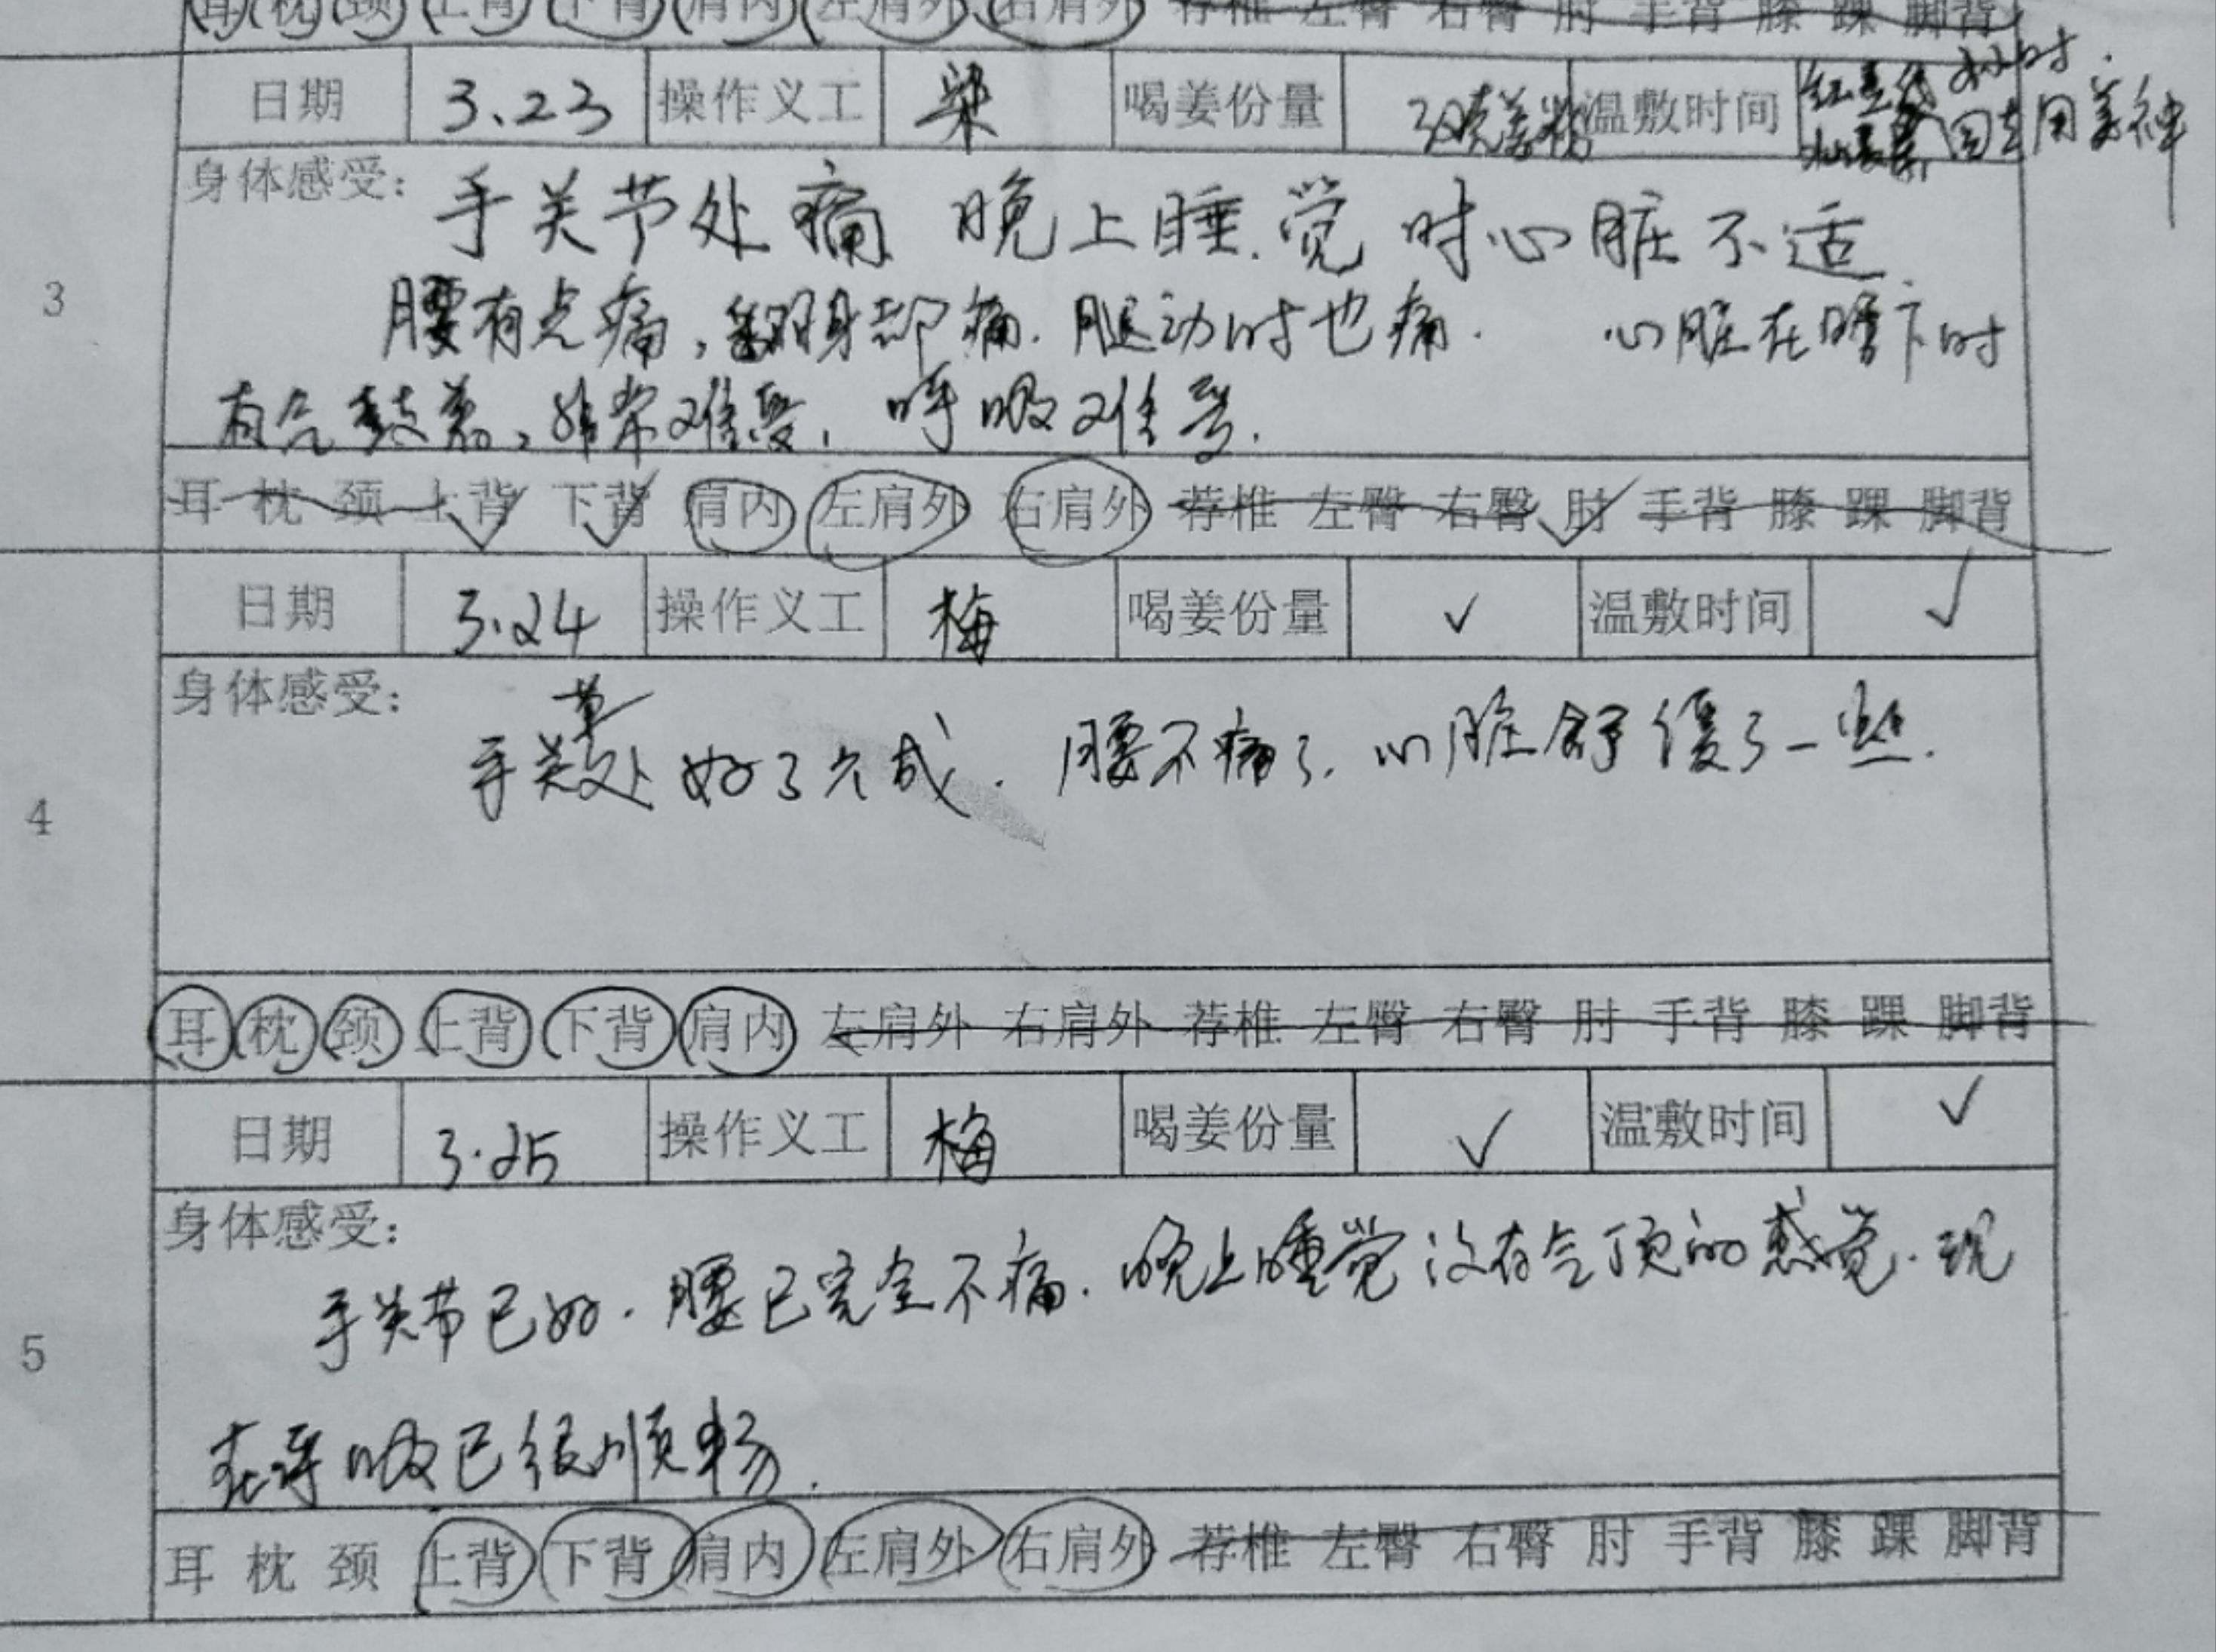 耳 枕 颈 上背 下背 肩内 左肩外 右肩外 荐椎 左臀 右臀 肘 手背 膝 踝 脚背
日期 3.23 操作义工 梁 喝姜份量 克姜粉 温敷时间 小时.
回去用姜
3
身体感受: 手关节处痛 晚上睡觉时心脏不适.
腰有点痛,翻身却痛.腿动时也痛. 心脏在睡下时
有气鼓着,非常难受,呼吸难受.
耳 枕 颈 上背 下背 肩内 左肩外 右肩外 荐椎 左臀 右臀 肘 手背 膝 踝 脚背
日期 3.24 操作义工 梅 喝姜份量 ✓ 温敷时间 ✓
4
身体感受: 手关节处好了六成.腰不痛了.心脏舒缓了一些.
耳 枕 颈 上背 下背 肩内 左肩外 右肩外 荐椎 左臀 右臀 肘 手背 膝 踝 脚背
日期 3.25 操作义工 梅 喝姜份量 ✓ 温敷时间 ✓
5
身体感受:
手关节已好.腰已完全不痛.晚上睡觉没有气顶的感觉.现
在呼吸已很顺畅.
耳 枕 颈 上背 下背 肩内 左肩外 右肩外 荐椎 左臀 右臀 肘 手背 膝 踝 脚背